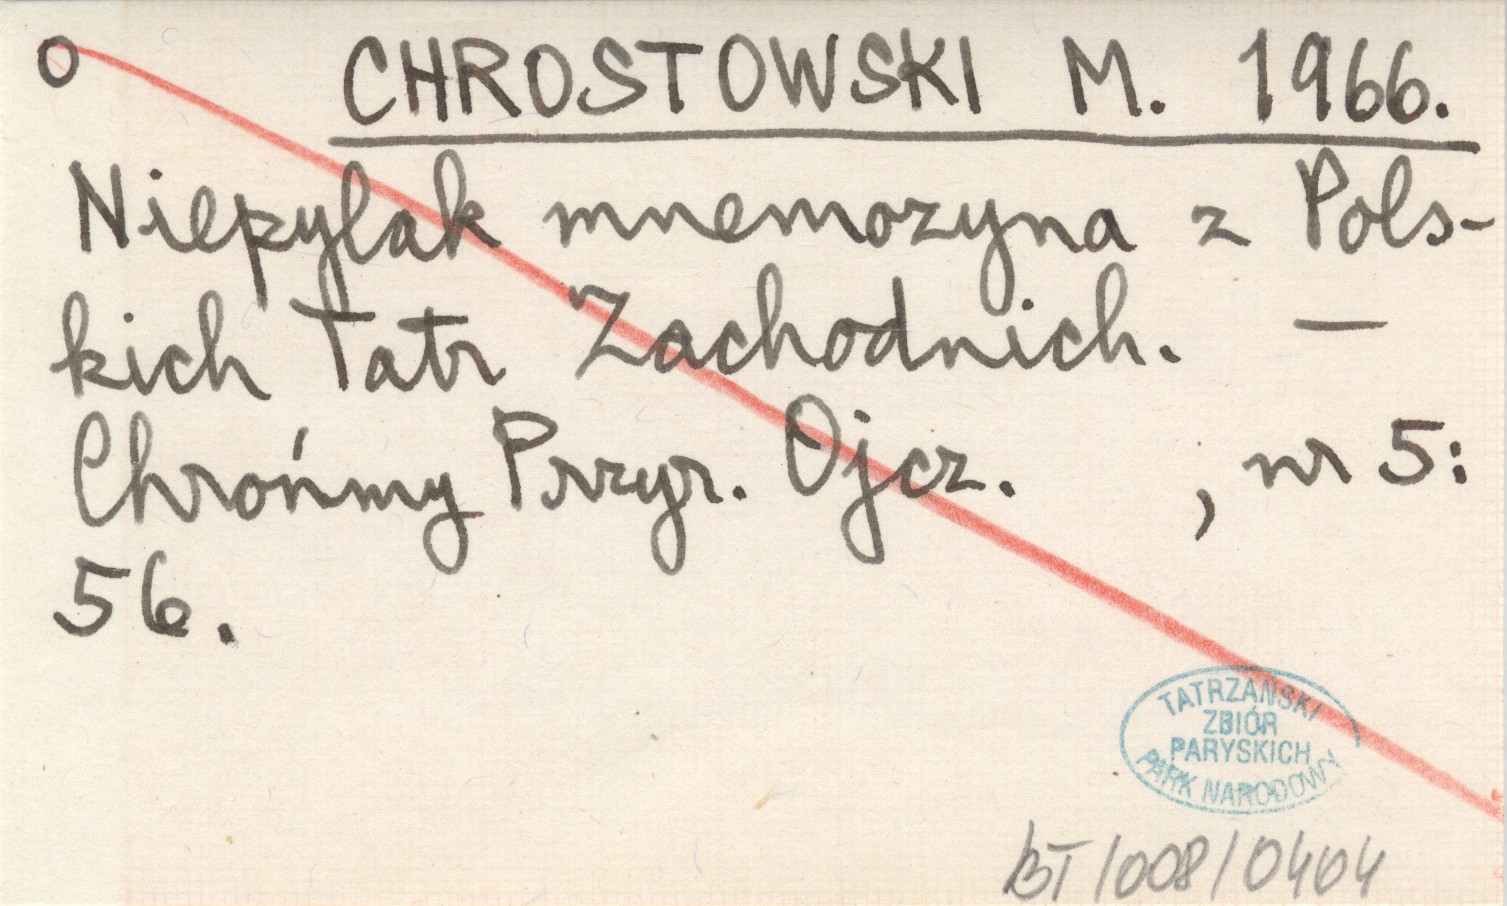 o CHROSTOWSKI M. 1966.
Niepylak mnemozyna z Pols-
kich Tatr Zachodnich. —
Chrońmy Przyr. Ojcz. , nr 5:
56.
TATRZAŃSKI
ZBIÓR
PARYSKICH
PARK NARODOWY
BT/008/0404